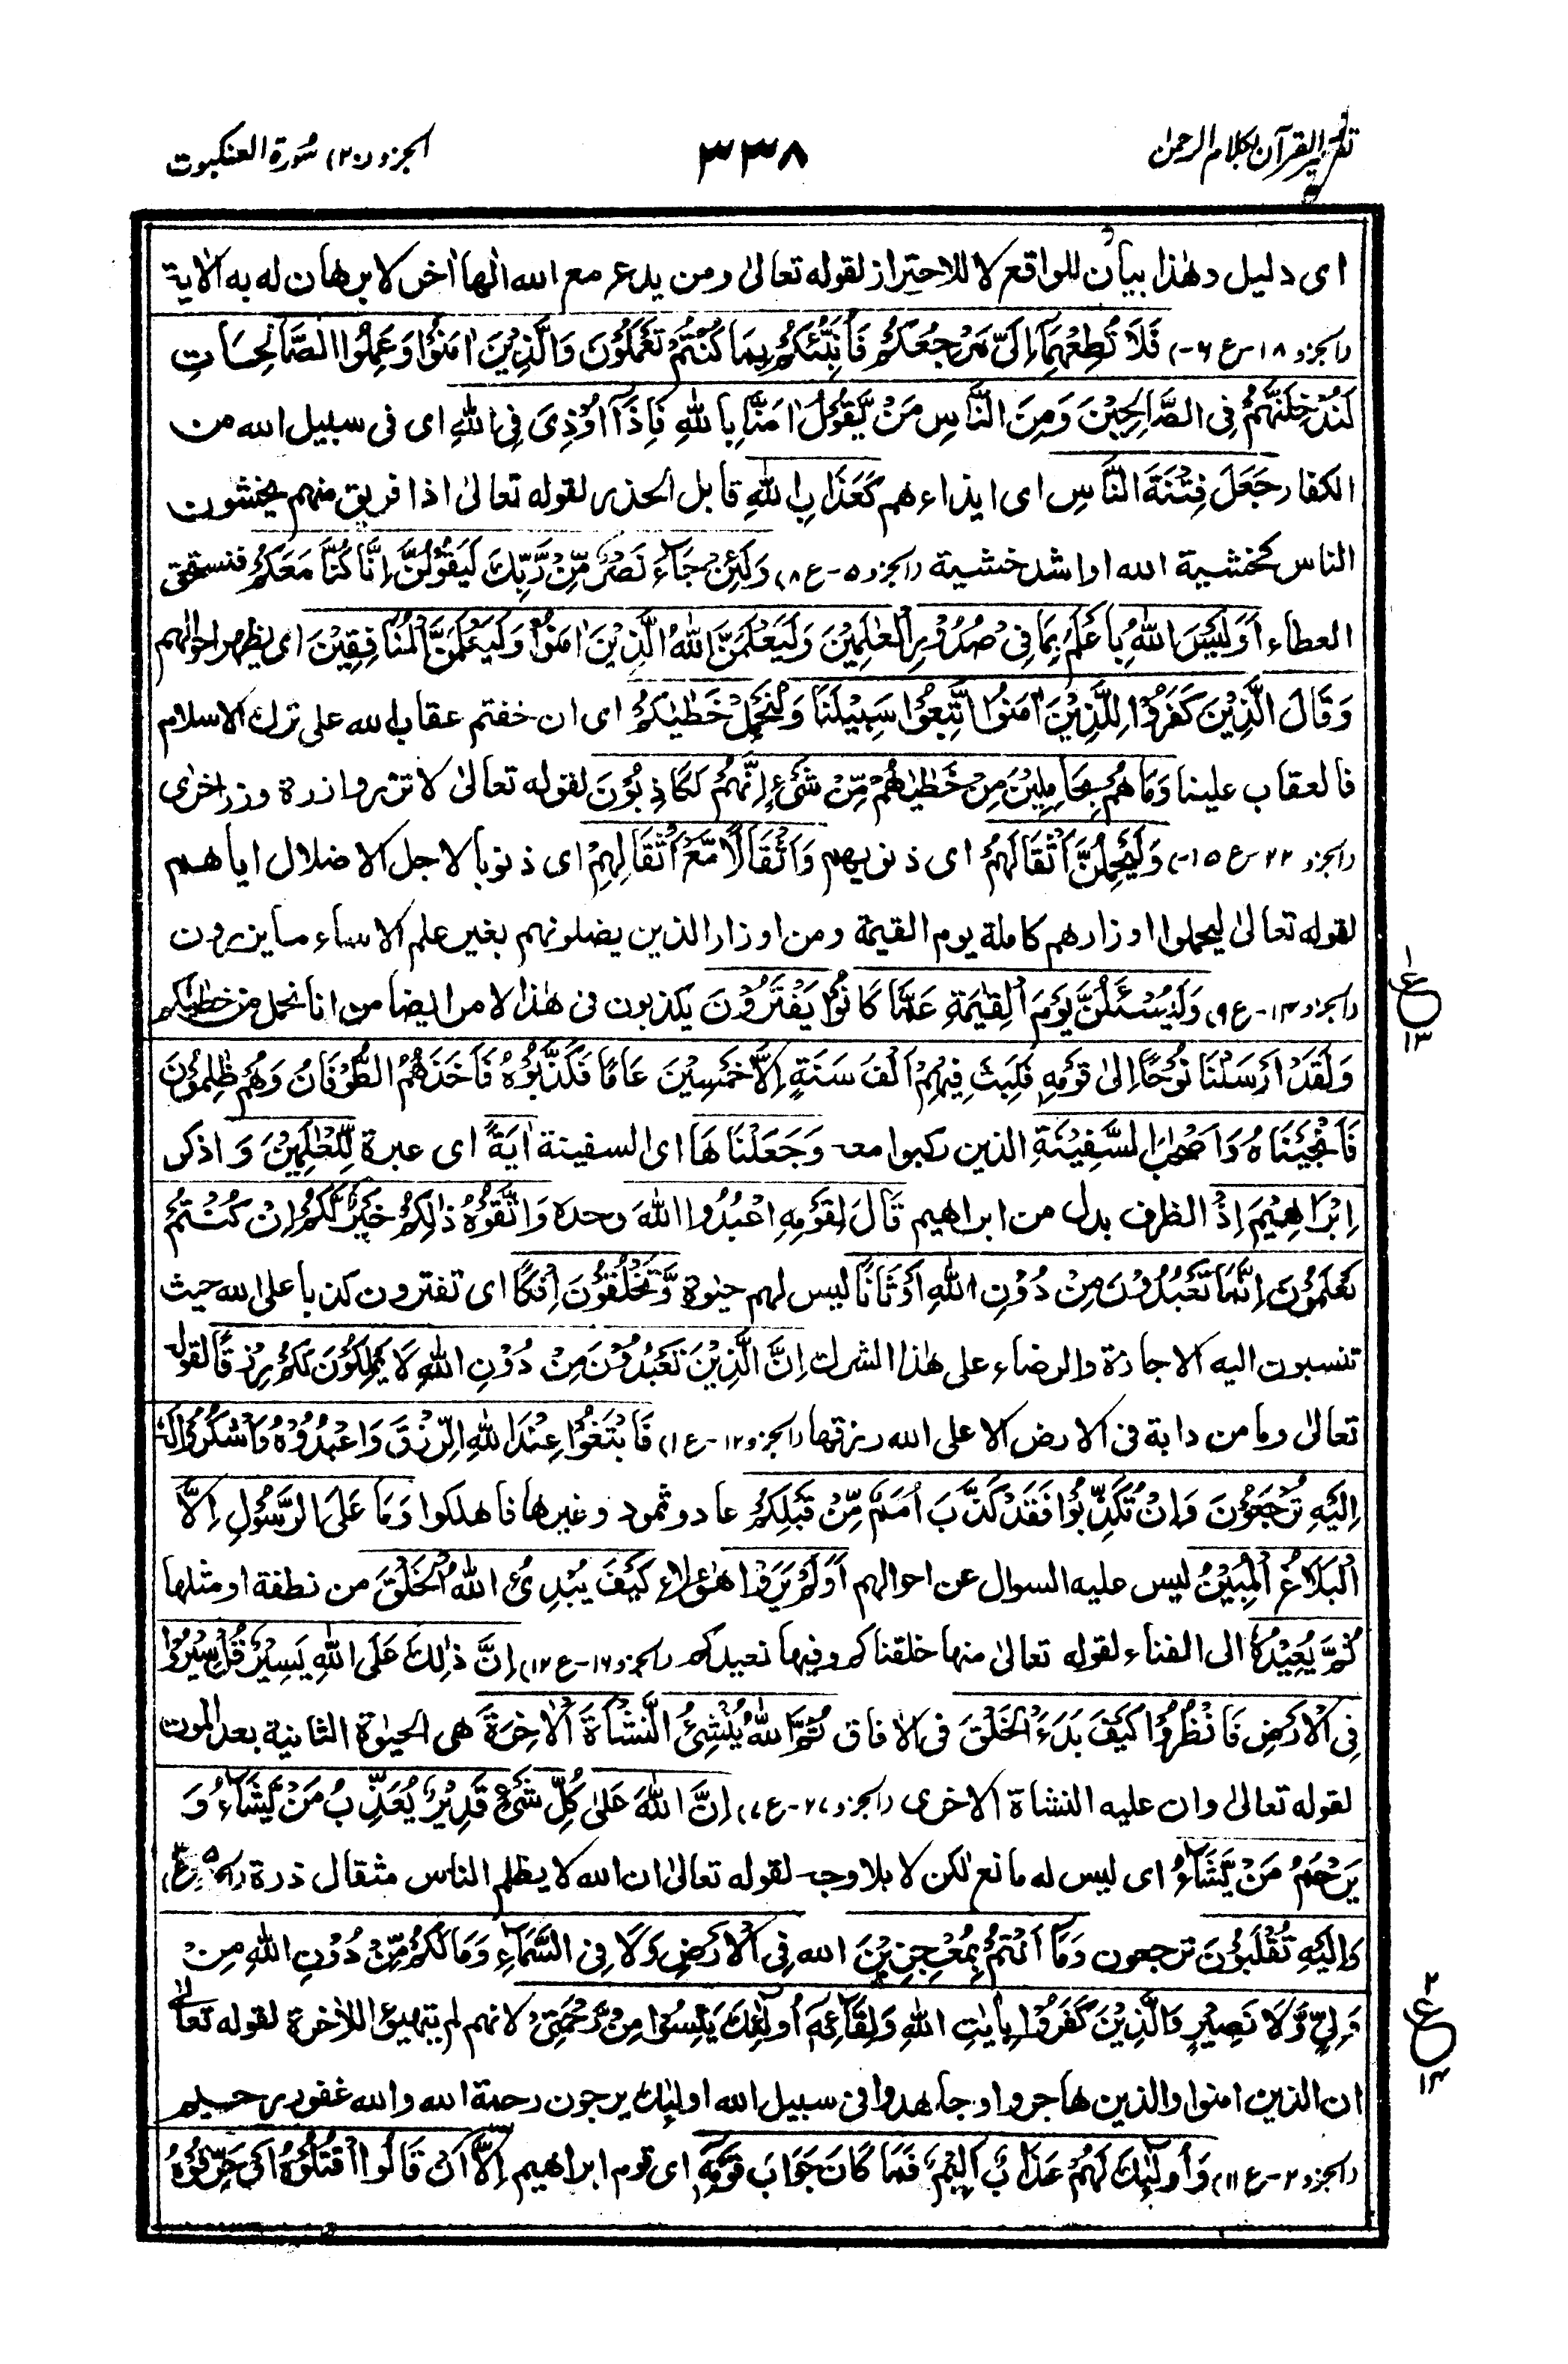 تفسير القرآن بكلام الرحمن
٣٣٨
الجزو (٢٠) سُورة العنكبوت
اى دليل وهٰذا بيان للواقع لا للاحتراز لقوله تعالىٰ ومن يدع مع الله الٰها اٰخر لا برهان له به الاٰية
(الجزو ١٨-ع ٦-) فَلَا تُطِعْهُمَا اِلَىَّ مَرْجِعُكُمْ فَاُنَبِّئُكُمْ بِمَا كُنْتُمْ تَعْمَلُوْنَ وَالَّذِيْنَ اٰمَنُوْا وَعَمِلُوا الصَّالِحَاتِ
لَنُدْخِلَنَّهُمْ فِى الصَّالِحِيْنَ وَمِنَ النَّاسِ مَنْ يَّقُوْلُ اٰمَنَّا بِاللهِ فَاِذَآ اُوْذِىَ فِى اللهِ اى فى سبيل الله من
الكفار جَعَلَ فِتْنَةَ النَّاسِ اى ايذاءهم كَعَذَابِ اللهِ قابل الحذر لقوله تعالىٰ اذا فريق منهم يخشون
الناس كخشية الله او اشد خشية (الجزو ٥-ع ٨) وَلَئِنْ جَآءَ نَصْرٌ مِّنْ رَّبِّكَ لَيَقُوْلُنَّ اِنَّا كُنَّا مَعَكُمْ فنستحق
العطاء اَوَلَيْسَ اللهُ بِاَعْلَمَ بِمَا فِىْ صُدُوْرِ الْعٰلَمِيْنَ وَلَيَعْلَمَنَّ اللهُ الَّذِيْنَ اٰمَنُوْا وَلَيَعْلَمَنَّ الْمُنَافِقِيْنَ اى يظهر احوالهم
وَقَالَ الَّذِيْنَ كَفَرُوْا لِلَّذِيْنَ اٰمَنُوا اتَّبِعُوْا سَبِيْلَنَا وَلْنَحْمِلْ خَطٰيٰكُمْ اى ان خفتم عقاب الله على ترك الاسلام
فالعقاب علينا وَمَا هُمْ بِحَامِلِيْنَ مِنْ خَطٰيٰهُمْ مِّنْ شَىْءٍ اِنَّهُمْ لَكَاذِبُوْنَ لقوله تعالىٰ لا تزر وازرة وزر اخرى
(الجزو ٢٢-ع ١٥-) وَلَيَحْمِلُنَّ اَثْقَالَهُمْ اى ذنوبهم وَاَثْقَالًا مَّعَ اَثْقَالِهِمْ اى ذنوبا لاجل الاضلال اياهم
لقوله تعالىٰ ليحملوا اوزارهم كاملة يوم القيمة ومن اوزار الذين يضلونهم بغير علم الا ساء ما يزرون
(الجزو ١٤-ع ٩) وَلَيُسْئَلُنَّ يَوْمَ الْقِيٰمَةِ عَمَّا كَانُوْا يَفْتَرُوْنَ يكذبون فى هٰذا الامر ايضا من انا نحمل من خطٰيٰكم
وَلَقَدْ اَرْسَلْنَا نُوْحًا اِلىٰ قَوْمِهٖ فَلَبِثَ فِيْهِمْ اَلْفَ سَنَةٍ اِلَّا خَمْسِيْنَ عَامًا فَكَذَّبُوْهُ فَاَخَذَهُمُ الطُّوْفَانُ وَهُمْ ظٰلِمُوْنَ
فَاَنْجَيْنَاهُ وَاَصْحٰبَ السَّفِيْنَةِ الذين ركبوا معه وَجَعَلْنَاهَا اى السفينة اٰيَةً اى عبرة لِّلْعٰلَمِيْنَ وَ اذكر
اِبْرَاهِيْمَ اِذْ الظرف بدل من ابراهيم قَالَ لِقَوْمِهِ اعْبُدُوا اللهَ وحده وَاتَّقُوْهُ ذٰلِكُمْ خَيْرٌ لَّكُمْ اِنْ كُنْتُمْ
تَعْلَمُوْنَ اِنَّمَا تَعْبُدُوْنَ مِنْ دُوْنِ اللهِ اَوْثَانًا ليس لهم حيٰوة وَّتَخْلُقُوْنَ اِفْكًا اى تفترون كذبا على الله حيث
تنسبون اليه الاجازة والرضاء على هٰذا الشرك اِنَّ الَّذِيْنَ تَعْبُدُوْنَ مِنْ دُوْنِ اللهِ لَا يَمْلِكُوْنَ لَكُمْ رِزْقًا لقوله
تعالىٰ وما من دابة فى الارض الا على الله رزقها (الجزو ١٢-ع ١) فَابْتَغُوْا عِنْدَ اللهِ الرِّزْقَ وَاعْبُدُوْهُ وَاشْكُرُوْا لَهٗ
اِلَيْهِ تُرْجَعُوْنَ وَاِنْ تُكَذِّبُوْا فَقَدْ كَذَّبَ اُمَمٌ مِّنْ قَبْلِكُمْ عاد وثمود وغيرها فاهلكوا وَمَا عَلَى الرَّسُوْلِ اِلَّا
الْبَلَاغُ الْمُبِيْنُ ليس عليه السوال عن احوالهم اَوَلَمْ يَرَوْا هٰؤلاء كَيْفَ يُبْدِئُ اللهُ الْخَلْقَ من نطفة او مثلها
ثُمَّ يُعِيْدُهٗ الى الفناء لقوله تعالىٰ منها خلقناكم وفيها نعيدكم (الجزو ١٦-ع ١٢) اِنَّ ذٰلِكَ عَلَى اللهِ يَسِيْرٌ قُلْ سِيْرُوْا
فِى الْاَرْضِ فَانْظُرُوْا كَيْفَ بَدَءَ الْخَلْقَ فى الاٰفاق ثُمَّ اللهُ يُنْشِئُ النَّشْاَةَ الْاٰخِرَةَ هى الحيٰوة الثانية بعد الموت
لقوله تعالىٰ وان عليه النشاة الاخرى (الجزو ٢٧-ع ٧) اِنَّ اللهَ عَلىٰ كُلِّ شَىْءٍ قَدِيْرٌ يُعَذِّبُ مَنْ يَّشَآءُ وَ
يَرْحَمُ مَنْ يَّشَآءُ اى ليس له مانع لكن لا بلا وجه لقوله تعالىٰ ان الله لا يظلم الناس مثقال ذرة
وَاِلَيْهِ تُقْلَبُوْنَ ترجعون وَمَا اَنْتُمْ بِمُعْجِزِيْنَ الله فِى الْاَرْضِ وَلَا فِى السَّمَآءِ وَمَا لَكُمْ مِّنْ دُوْنِ اللهِ مِنْ
وَّلِىٍّ وَّلَا نَصِيْرٍ وَالَّذِيْنَ كَفَرُوْا بِاٰيٰتِ اللهِ وَلِقَآئِهٖ اُولٰٓئِكَ يَئِسُوْا مِنْ رَّحْمَتِىْ لانهم لم يتهيؤ اللاٰخرة لقوله تعالىٰ
ان الذين اٰمنوا والذين هاجروا وجاهدوا فى سبيل الله اولٰئك يرجون رحمة الله والله غفور رحيم
(الجزو ٢-ع ١١) وَاُولٰٓئِكَ لَهُمْ عَذَابٌ اَلِيْمٌ فَمَا كَانَ جَوَابَ قَوْمِهٖ اى قوم ابراهيم اِلَّا اَنْ قَالُوا اقْتُلُوْهُ اَوْ حَرِّقُوْهُ
١
ع
١٣
٢
ع
١٤